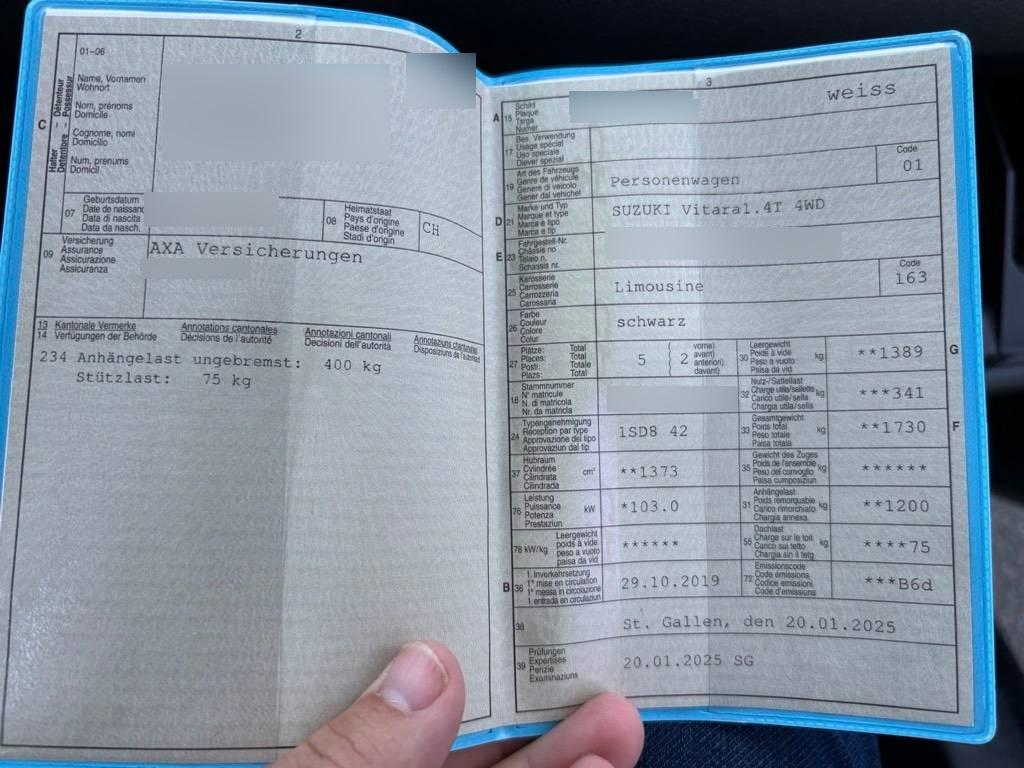 2
01-06
C
Halter – Détenteur
Detentore – Possessur
Name, Vornamen
Wohnort
Nom, prénoms
Domicile
Cognome, nomi
Domicilio
Num, prenums
Domicil
07
Geburtsdatum
Date de naissanc
Data di nascita
Data da nasch.
08
Heimatstaat
Pays d'origine
Paese d'origine
Stadi d'origin
CH
09
Versicherung
Assurance
Assicurazione
Assicuranza
AXA Versicherungen
13 Kantonale Vermerke
14 Verfügungen der Behörde
Annotations cantonales
Décisions de l'autorité
Annotazioni cantonali
Decisioni dell'autorità
Annotaziuns chantunalas
Disposiziuns da l'autoritad
234 Anhängelast ungebremst: 400 kg
Stützlast: 75 kg
3
A 15
Schild
Plaque
Targa
Numer
weiss
17
Bes. Verwendung
Usage spécial
Uso speciale
Diever spezial
19
Art des Fahrzeugs
Genre de véhicule
Genere di veicolo
Gener dal vehichel
Personenwagen
Code
01
D 21
Marke und Typ
Marque et type
Marca e tipo
Marca e tip
SUZUKI Vitara1.4T 4WD
E 23
Fahrgestell-Nr.
Châssis no
Telaio n.
Schassis nr.
25
Karosserie
Carrosserie
Carrozzeria
Carossaria
Limousine
Code
163
26
Farbe
Couleur
Colore
Colur
schwarz
27
Plätze: Total
Places: Total
Posti: Totale
Plazs: Total
5
2
vorne)
avant)
anteriori)
davant)
30
Leergewicht
Poids à vide
Peso a vuoto
Paisa da vid
kg
**1389
G
18
Stammnummer
N° matricule
N. di matricola
Nr. da matricla
32
Nutz-/Sattellast
Charge utile/sellette
Carico utile/sella
Chargia utila/sella
kg
***341
24
Typengenehmigung
Réception par type
Approvazione del tipo
Approvaziun dal tip
1SD8 42
33
Gesamtgewicht
Poids total
Peso totale
Paisa totala
kg
**1730
F
37
Hubraum
Cylindrée
Cilindrata
Cilindrada
cm³
**1373
35
Gewicht des Zuges
Poids de l'ensemble
Peso del convoglio
Paisa cumposiziun
kg
******
76
Leistung
Puissance
Potenza
Prestaziun
kW
*103.0
31
Anhängelast
Poids remorquable
Carico rimorchiato
Chargia annexa
kg
**1200
78 kW/kg
Leergewicht
poids à vide
peso a vuoto
paisa da vid
******
55
Dachlast
Charge sur le toit
Carico sul tetto
Chargia sin il tetg
kg
****75
B 36
1. Inverkehrsetzung
1re mise en circulation
1a messa in circolazione
1. entrada en circulaziun
29.10.2019
72
Emissionscode
Code émissions
Codice emissioni
Code d'emissiuns
***B6d
38
St. Gallen, den 20.01.2025
39
Prüfungen
Expertises
Perizie
Examinaziuns
20.01.2025 SG